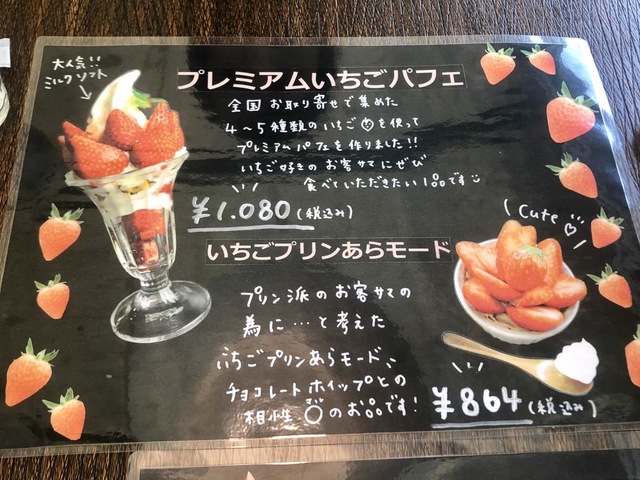 大人気!!
ミルクソフト
プレミアムいちごパフェ
全国お取り寄せで集めた
4〜5種類のいちごを使って
プレミアムパフェを作りました!!
いちご好きのお客サマにぜひ
食べていただきたい1品です
¥1.080(税込み)
いちごプリンあらモード
Cute
プリン派のお客サマの
為に…と考えた
いちごプリンあらモード、
チョコレートホイップとの
相性◎のお品です!
¥864(税込み)